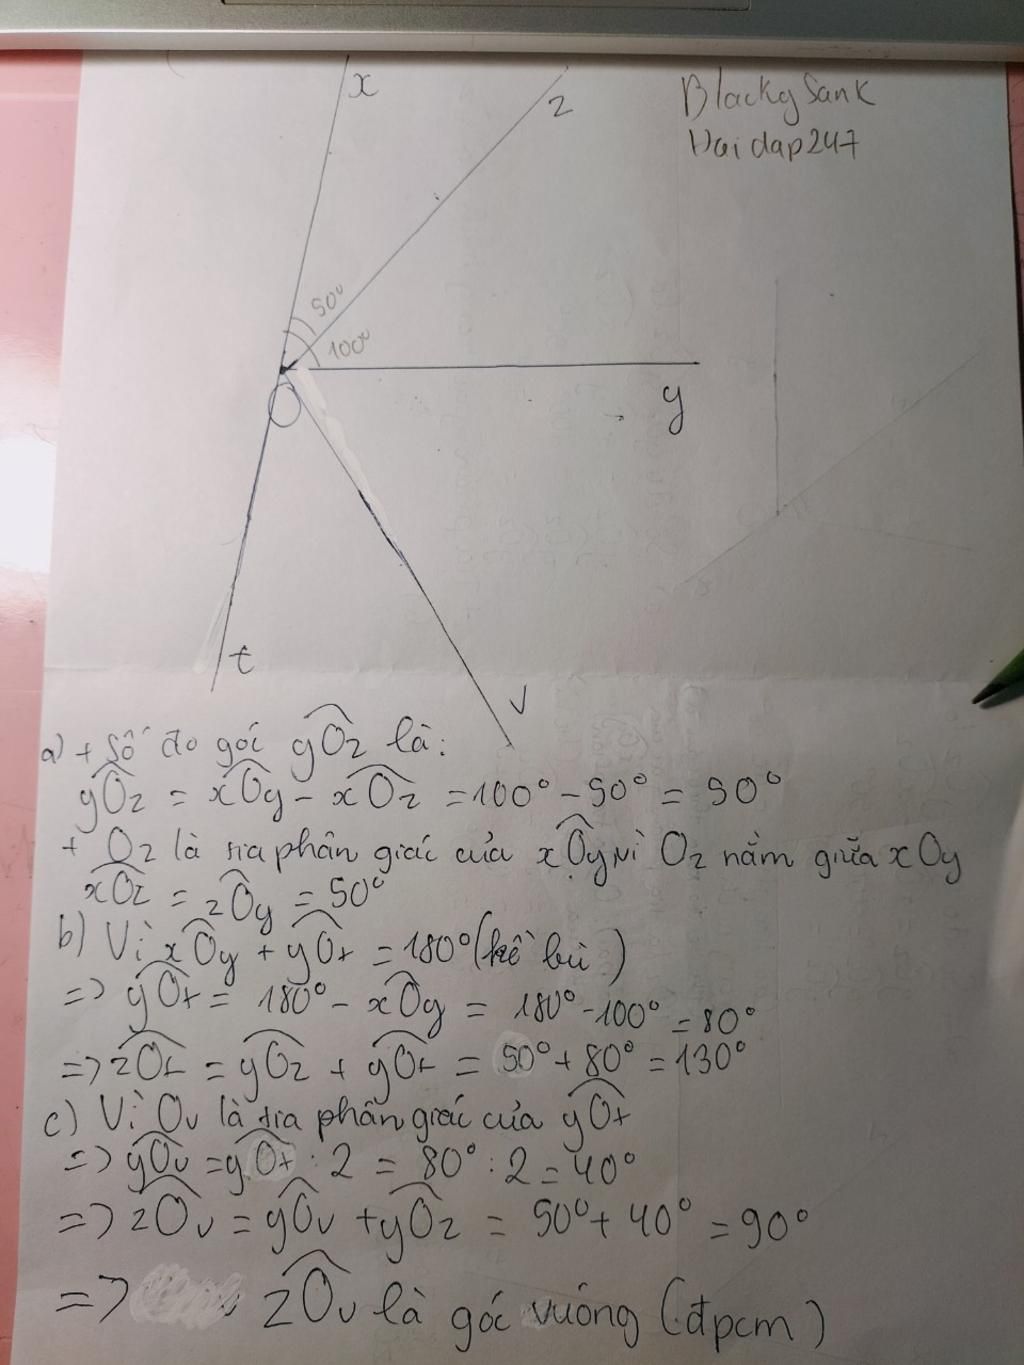 x
z
Blacky Sank
Hoidap247
50°
100°
O
y
t
v
a) + Số đo góc yOz là:
yOz = xOy - xOz = 100° - 50° = 50°
+ Oz là tia phân giác của xOy vì Oz nằm giữa xOy
xOz = zOy = 50°
b) Vì xOy + yOt = 180° (kề bù)
=> yOt = 180° - xOy = 180° - 100° = 80°
=> zOt = yOz + yOt = 50° + 80° = 130°
c) Vì Ov là tia phân giác của yOt
=> yOv = yOt : 2 = 80° : 2 = 40°
=> zOv = yOv + yOz = 50° + 40° = 90°
=> zOv là góc vuông (đpcm)